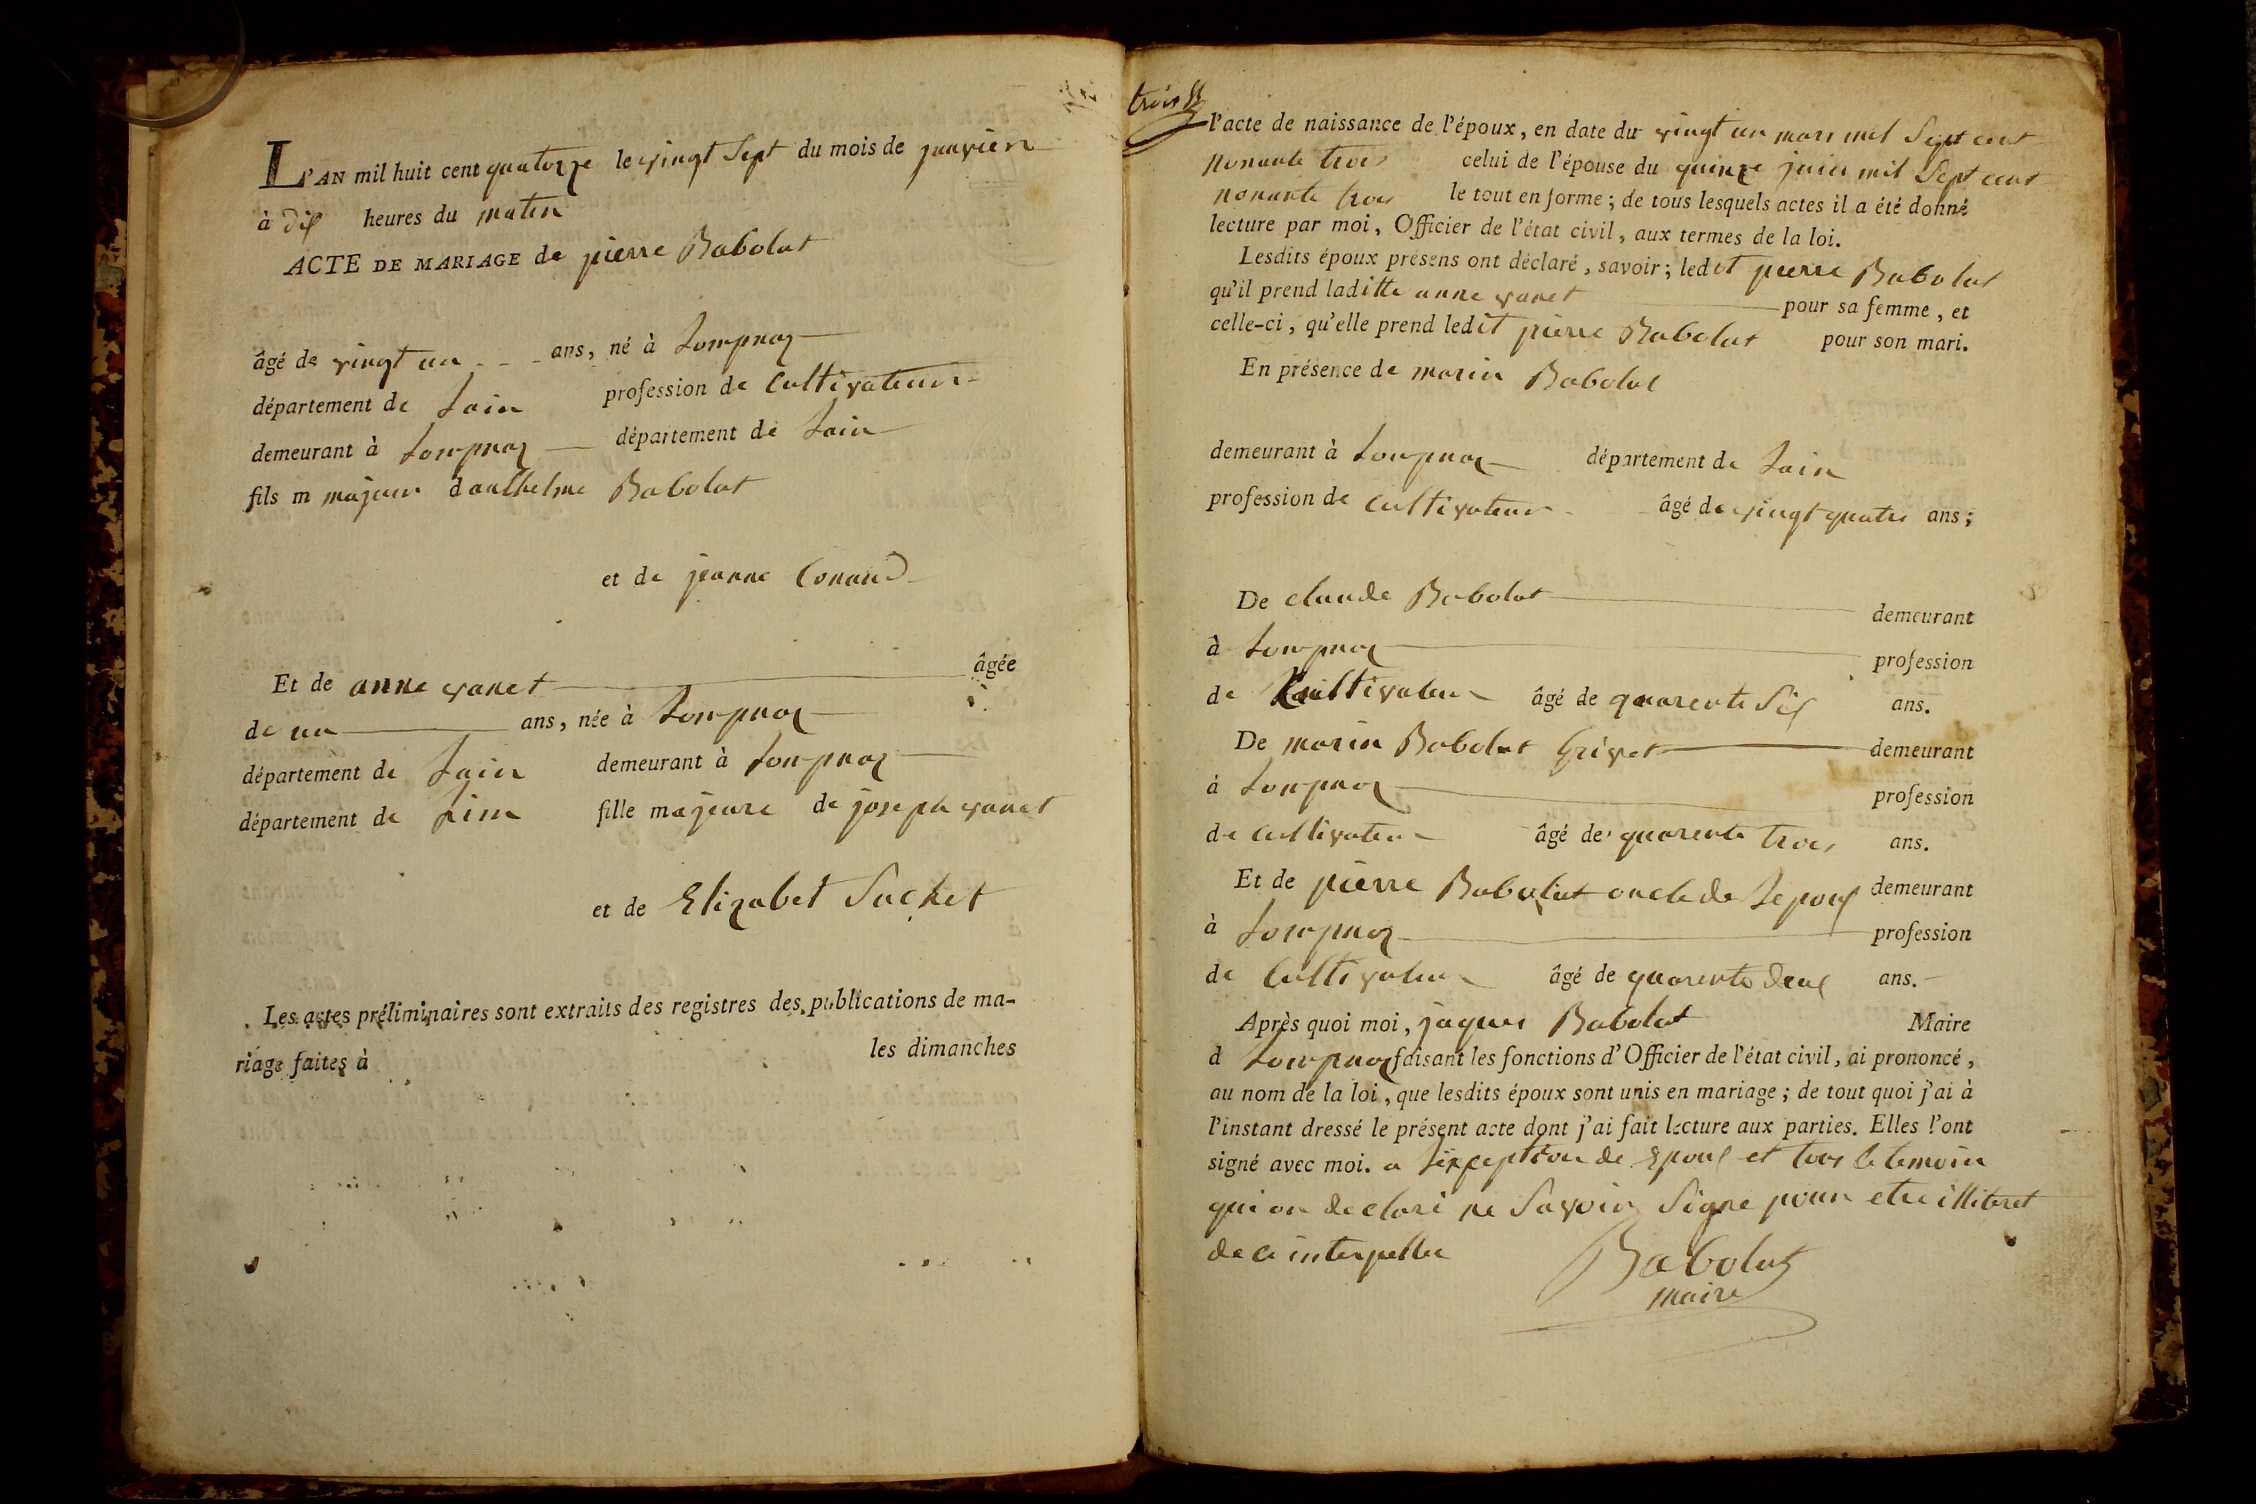 L'AN mil huit cent quatorze le vingt Sept du mois de janvier
à dix heures du matin
ACTE DE MARIAGE de pierre Babolat
âgé de vingt un ans, né à Lompnaz
département de Lain profession de Cultivateur
demeurant à Lompnaz département de Lain
fils m majeur danthelme Babolat
et de jeanne Conand
Et de anne vanet âgée
de un ans, née à Lompnaz
département de Lain demeurant à Lompnaz
département de Lim fille majeure de joseph vanet
et de Elizabet Suchet
Les actes préliminaires sont extraits des registres des publications de ma-
riage faites à les dimanches
trois
l'acte de naissance de l'époux, en date du vingt un mars mil Sept cent
nonante trois celui de l'épouse du quinze juin mil Sept cent
nonante trois le tout en forme; de tous lesquels actes il a été donné
lecture par moi, Officier de l'état civil, aux termes de la loi.
Lesdits époux présens ont déclaré, savoir; ledit pierre Babolat
qu'il prend laditte anne vanet pour sa femme, et
celle-ci, qu'elle prend ledit pierre Babolat pour son mari.
En présence de marin Babolat
demeurant à Lompnaz département de Lain
profession de Cultivateur âgé de vingt quatre ans;
De claude Babolat demeurant
à Lompnaz profession
de Cultivateur âgé de quarente Six ans.
De marin Babolat Grivet demeurant
à Lompnaz profession
de Cultivateur âgé de quarente trois ans.
Et de pierre Babolat oncle de Lepoux demeurant
à Lompnaz profession
de Cultivateur âgé de quarente deux ans.
Après quoi moi, jaques Babolat Maire
d Lompnaz faisant les fonctions d'Officier de l'état civil, ai prononcé,
au nom de la loi, que lesdits époux sont unis en mariage; de tout quoi j'ai à
l'instant dressé le présent acte dont j'ai fait lecture aux parties. Elles l'ont
signé avec moi. a Lexception de Epoux et tous le temoin
qui on declaré ne Savoir Signe pour etre illiteret
de ce interpelle
Babolat
maire